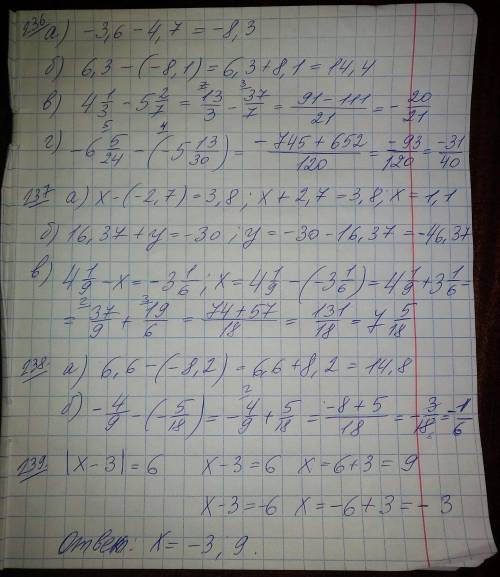 736. а) -3,6 - 4,7 = -8,3
б) 6,3 - (-8,1) = 6,3 + 8,1 = 14,4
в) 4 1/3 - 5 2/7 = 13/3 - 37/7 = (91 - 111)/21 = -20/21
г) -6 5/24 - (-5 13/30) = (-745 + 652)/120 = -93/120 = -31/40
737 а) x - (-2,7) = 3,8; x + 2,7 = 3,8; x = 1,1
б) 16,37 + y = -30; y = -30 - 16,37 = -46,37
в) 4 1/9 - x = -3 1/6; x = 4 1/9 - (-3 1/6) = 4 1/9 + 3 1/6 =
= 37/9 + 19/6 = (74 + 57)/18 = 131/18 = 7 5/18
738. а) 6,6 - (-8,2) = 6,6 + 8,2 = 14,8
б) -4/9 - (-5/18) = -4/9 + 5/18 = (-8 + 5)/18 = -3/18 = -1/6
739. |x - 3| = 6 x - 3 = 6 x = 6 + 3 = 9
x - 3 = -6 x = -6 + 3 = -3
Ответ: x = -3, 9.